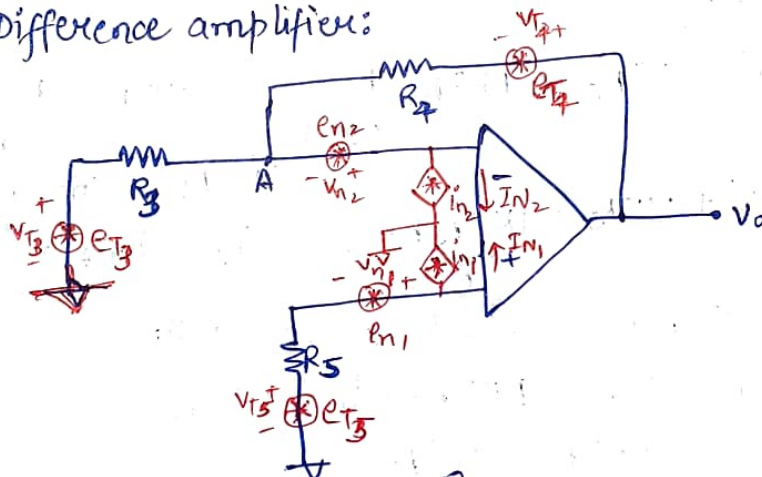 Difference amplifier:
- VT4 +
R4
eT4
en2
- Vn2 +
R3
A
-
in2
IN2
+
VT3
-
eT3
Vn1
- +
in1
IN1
+
Vo
en1
R5
VT5 +
-
eT5